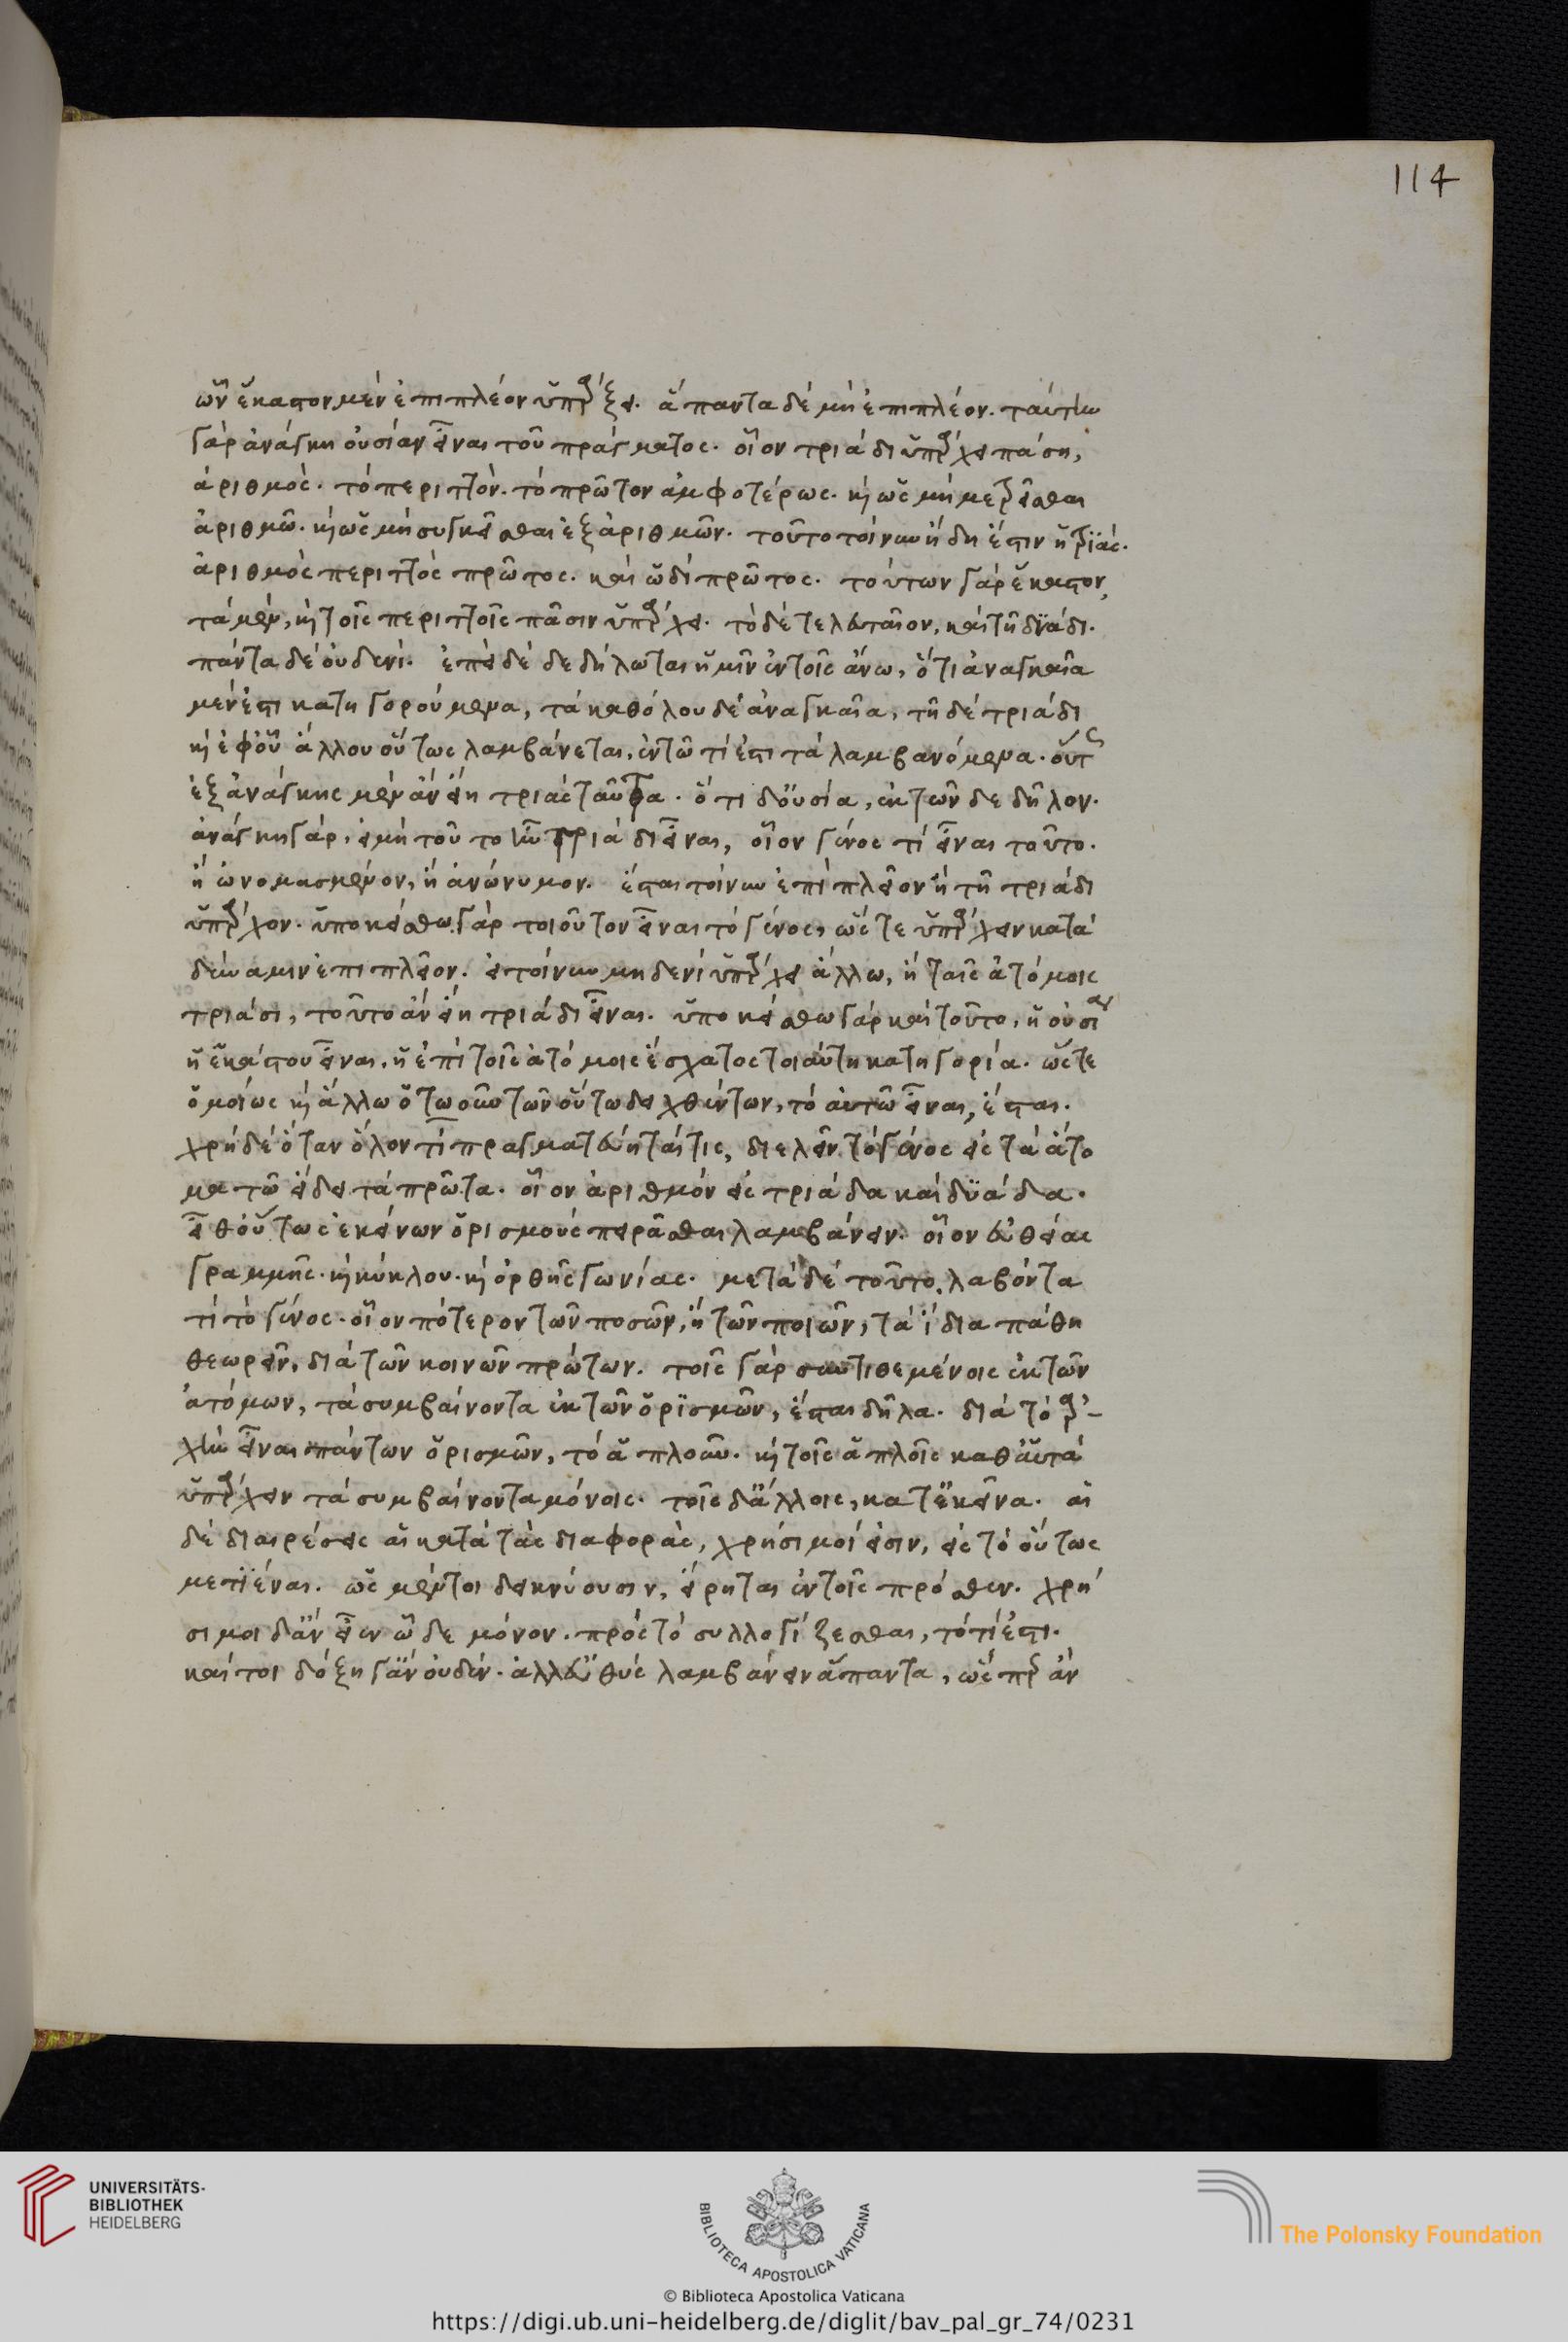 114
ὧν ἕκαστον μὲν ἐπιπλέον ὑπάρξει. ἅπαντα δὲ μὴ ἐπιπλέον. ταύτην
γὰρ ἀνάγκη οὐσίαν εἶναι τοῦ πράγματος. οἷον τριάδι ὑπάρχει πάση,
ἀριθμός. τὸ περιττόν. τὸ πρῶτον ἀμφοτέρως. καὶ ὡς μὴ μετρεῖσθαι
ἀριθμῶ. καὶ ὡς μὴ συγκεῖσθαι ἐξ ἀριθμῶν. τοῦτο τοίνυν ἤδη ἐστὶν ἡ τριάς.
ἀριθμὸς περιττὸς πρῶτος. καὶ ὡδὶ πρῶτος. τούτων γὰρ ἕκαστον,
τὰ μὲν, καὶ τοῖς περιττοῖς πᾶσιν ὑπάρχει. τὸ δὲ τελευταῖον, καὶ τῆ δυάδι.
πάντα δὲ οὐδενί. ἐπεὶ δὲ δεδήλωται ἡμῖν ἐν τοῖς ἄνω, ὅτι ἀναγκαῖα
μέν ἐστι κατηγορούμενα, τὰ καθόλου δὲ ἀναγκαῖα, τῆ δὲ τριάδι
καὶ ἐφ' οὗ ἄλλου οὕτως λαμβάνεται, ἐν τῶ τί ἐστι τὰ λαμβανόμενα. οὕτως
ἐξ ἀνάγκης μὲν ἂν εἴη τριὰς ταῦτα. ὅτι δ' οὐσία, ἐκ τῶνδε δῆλον.
ἀνάγκη γὰρ, εἰ μὴ τοῦτο ἦν τριάδι εἶναι, οἷον γένος τί εἶναι τοῦτο.
ἢ ὠνομασμένον, ἢ ἀνώνυμον. ἔσται τοίνυν ἐπὶ πλεῖον ἢ τῆ τριάδι
ὑπάρχον. ὑποκείσθω γὰρ τοιοῦτον εἶναι τὸ γένος, ὥστε ὑπάρχειν κατὰ
δύναμιν ἐπιπλεῖον. εἰ τοίνυν μηδενὶ ὑπάρχει ἄλλω, ἢ ταῖς ἀτόμοις
τριάσι, τοῦτο ἂν εἴη τριάδι εἶναι. ὑποκείσθω γὰρ καὶ τοῦτο, ἡ οὐσίαν
ἡ ἑκάστου εἶναι, ἡ ἐπὶ τοῖς ἀτόμοις ἔσχατος τοιαύτη κατηγορία. ὥστε
ὁμοίως καὶ ἄλλω ὁτωοῦν τῶν οὕτω δειχθέντων, τὸ αὐτῶ εἶναι, ἔσται.
χρὴ δὲ ὅταν ὅλον τὶ πραγματεύηταί τις, διελεῖν τὸ γένος εἰς τὰ ἄτο
μα τῶ εἴδει τὰ πρῶτα. οἷον ἀριθμὸν εἰς τριάδα καὶ δυάδα.
εἶθ' οὕτως ἐκείνων ὁρισμοὺς πειρᾶσθαι λαμβάνειν. οἷον εὐθείας
γραμμῆς. καὶ κύκλου. καὶ ὀρθῆς γωνίας. μετὰ δὲ τοῦτο, λαβόντα
τί τὸ γένος. οἷον πότερον τῶν ποσῶν, ἢ τῶν ποιῶν, τὰ ἴδια πάθη
θεωρεῖν, διὰ τῶν κοινῶν πρώτων. τοῖς γὰρ συντιθεμένοις ἐκ τῶν
ἀτόμων, τὰ συμβαίνοντα ἐκ τῶν ὁρισμῶν, ἔσται δῆλα. διὰ τὸ ἀρ-
χὴν εἶναι πάντων ὁρισμῶν, τὸ ἁπλοῦν. καὶ τοῖς ἁπλοῖς καθ' αὑτὰ
ὑπάρχειν τὰ συμβαίνοντα μόνοις. τοῖς δ' ἄλλοις, κατ' ἐκεῖνα. αἱ
δὲ διαιρέσεις αἱ κατὰ τὰς διαφορὰς, χρήσιμοί εἰσιν, εἰς τὸ οὕτως
μετιέναι. ὡς μέντοι δεικνύουσιν, εἴρηται ἐν τοῖς πρόσθεν. χρή
σιμοι δ' ἂν εἶεν ὧδε μόνον. πρὸς τὸ συλλογίζεσθαι, τὸ τί ἐστι.
καίτοι δόξη γ' ἂν οὐδέν. ἀλλ' εὐθὺς λαμβάνειν ἅπαντα, ὥσπερ ἂν
UNIVERSITÄTS-
BIBLIOTHEK
HEIDELBERG
BIBLIOTECA APOSTOLICA VATICANA
The Polonsky Foundation
© Biblioteca Apostolica Vaticana
https://digi.ub.uni-heidelberg.de/diglit/bav_pal_gr_74/0231